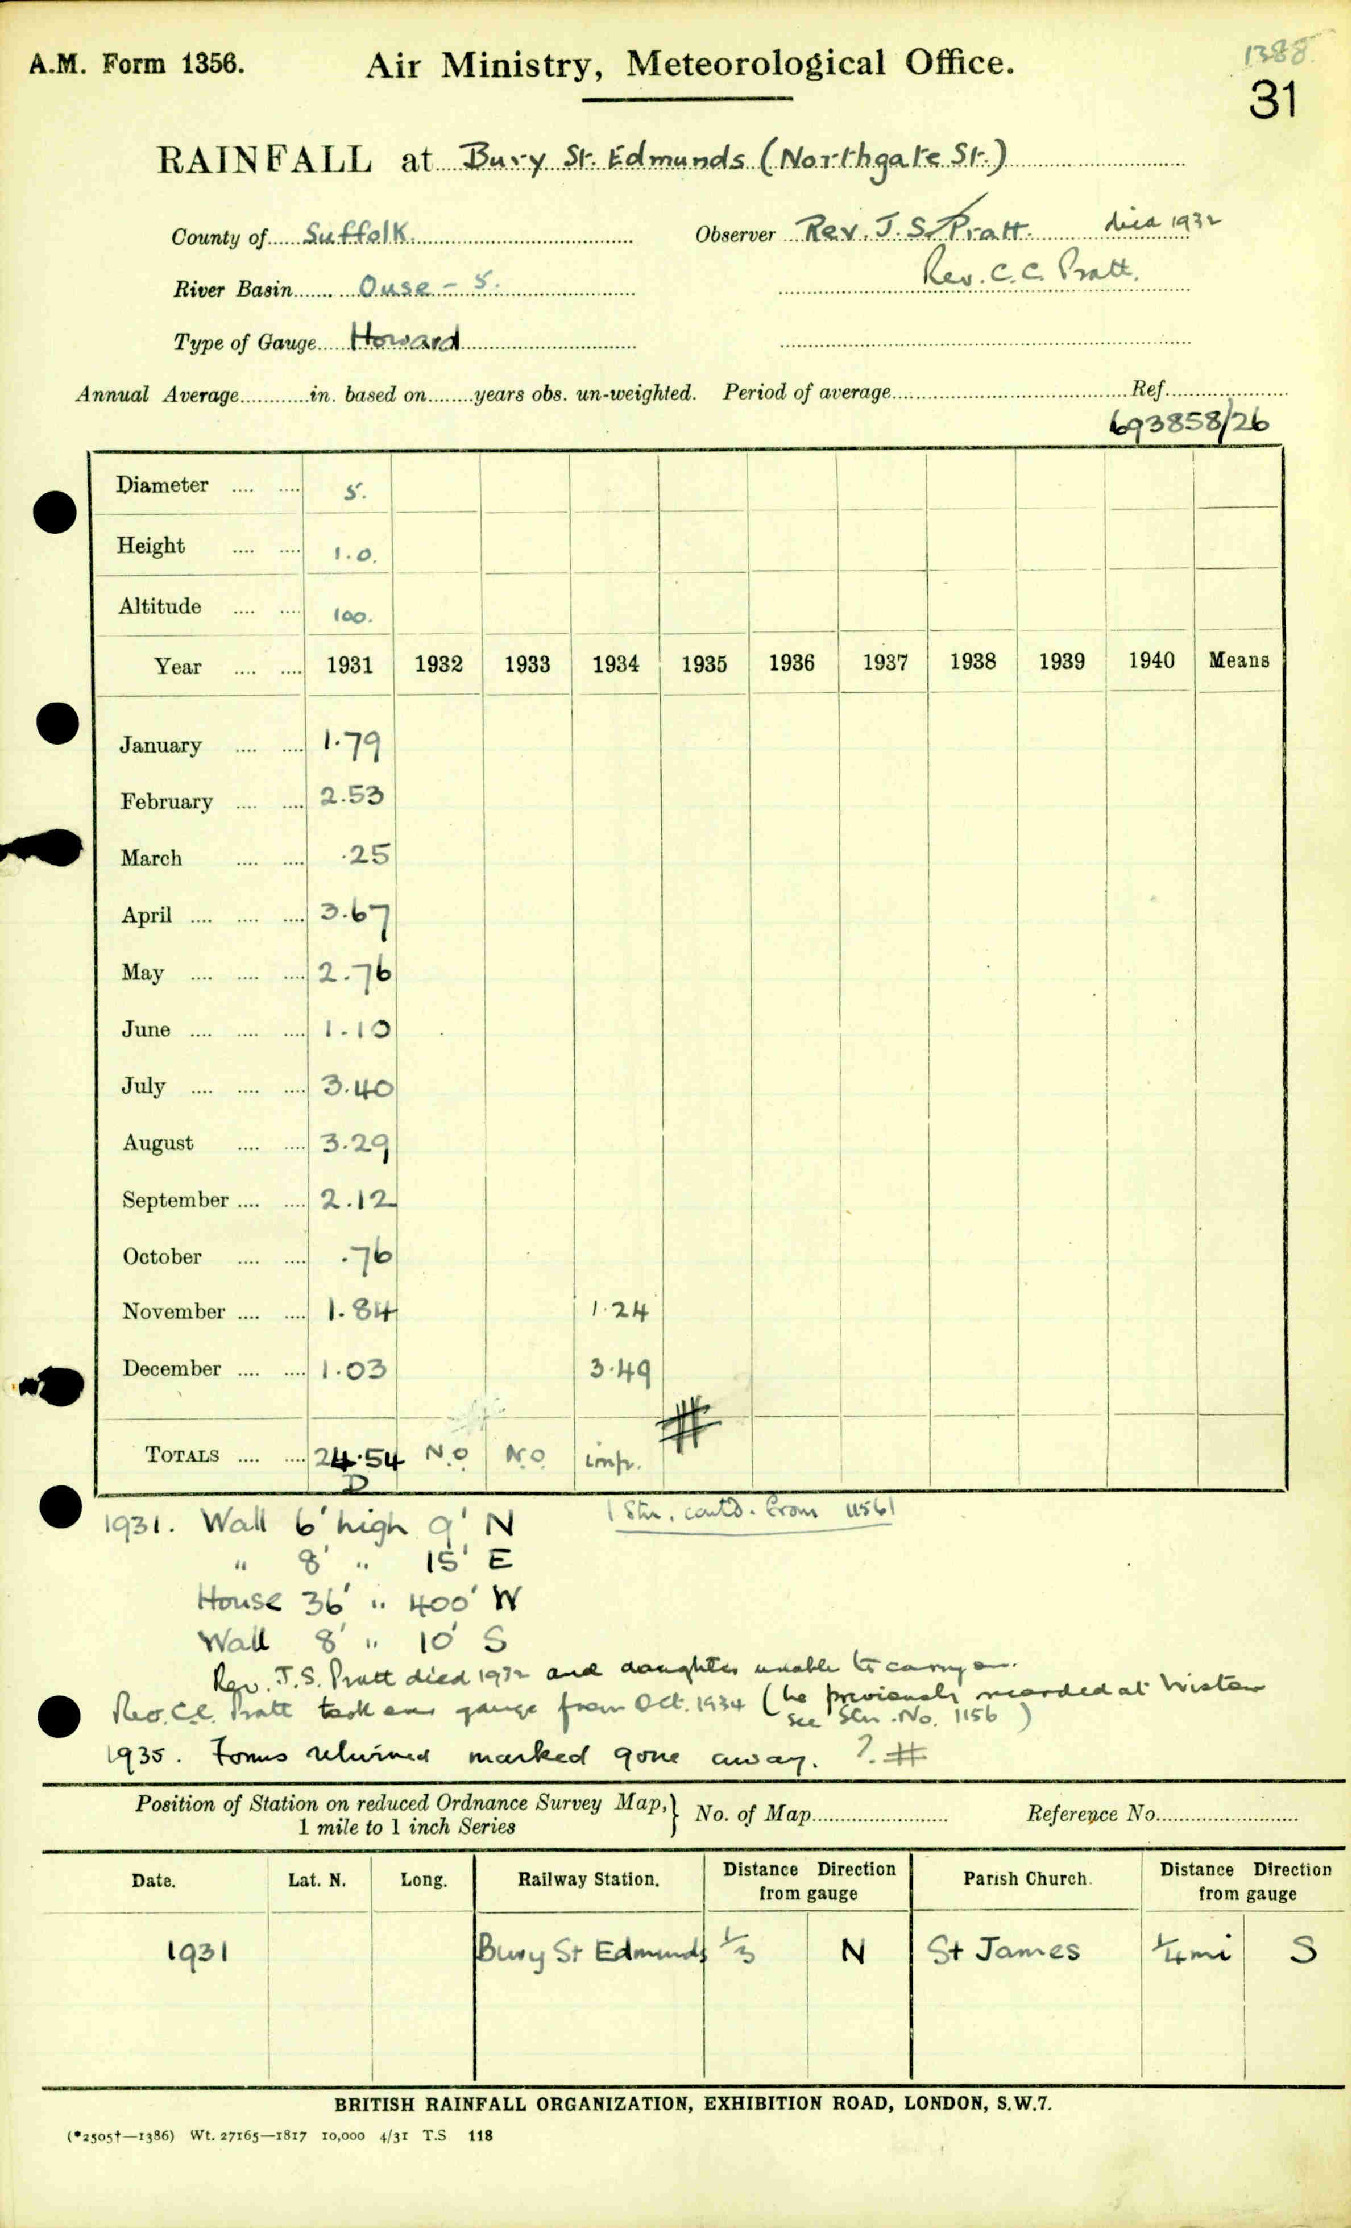 A.M. Form 1356.
Air Ministry, Meteorological Office.
1388.
31
RAINFALL at Bury St. Edmunds (Northgate St.)
County of Suffolk
Observer Rev. J. S. Pratt. died 1932
River Basin Ouse - 5.
Rev. C. C. Pratt.
Type of Gauge Howard
Annual Average in. based on years obs. un-weighted. Period of average Ref.
693858/26
Diameter .... .... 5.
Height .... .... 1.0.
Altitude .... .... 100.
Year .... .... 1931 1932 1933 1934 1935 1936 1937 1938 1939 1940 Means
January .... .... 1.79
February .... .... 2.53
March .... .... .25
April .... .... .... 3.67
May .... .... .... 2.76
June .... .... .... 1.10
July .... .... .... 3.40
August .... .... 3.29
September .... .... 2.12
October .... .... .76
November .... .... 1.84 1.24
December .... .... 1.03 3.49
#
TOTALS .... .... 24.54 N.O N.O. imp.
D
1931. Wall 6' high 9' N
(Stn. contd. from 1156)
" 8' " 15' E
House 36' " 400' W
Wall 8' " 10' S
Rev. J.S. Pratt died 1932 and daughter unable to carry on.
Rev. C.C. Pratt took over gauge from Oct. 1934 (he previously recorded at Wistow
see Stn. No. 1156)
1935. Forms returned marked gone away. ? #
Position of Station on reduced Ordnance Survey Map, } No. of Map Reference No.
1 mile to 1 inch Series
Date. Lat. N. Long. Railway Station. Distance Direction from gauge Parish Church. Distance Direction from gauge
1931 Bury St Edmunds 1/3 N St James 1/4 mi S
BRITISH RAINFALL ORGANIZATION, EXHIBITION ROAD, LONDON, S.W.7.
(*2505†—1386) Wt. 27165—1817 10,000 4/31 T.S 118